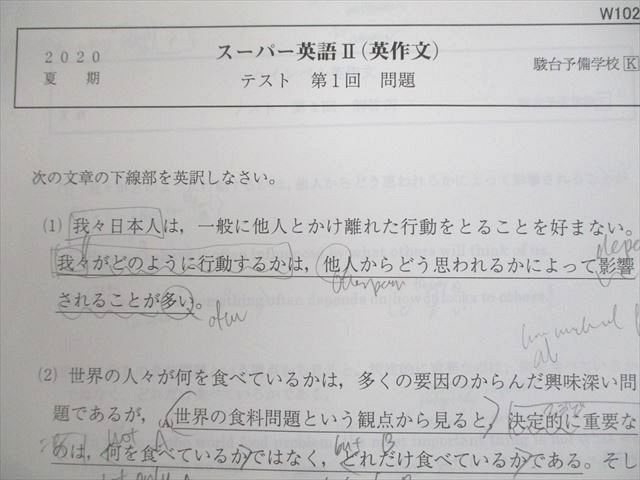 W102
2020
夏 期
スーパー英語Ⅱ(英作文)
テスト 第1回 問題
駿台予備学校 K
次の文章の下線部を英訳しなさい。
(1) 我々日本人は，一般に他人とかけ離れた行動をとることを好まない。
depe
我々がどのように行動するかは，他人からどう思われるかによって影響
されることが多い。
often
(2) 世界の人々が何を食べているかは，多くの要因のからんだ興味深い問
題であるが，(A)世界の食料問題という観点から見ると，決定的に重要な
not A but B
のは，何を食べているかではなく，どれだけ食べているかである。そし
not only